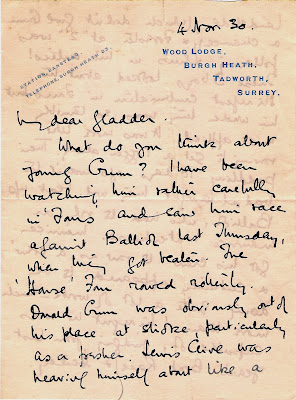 4 Nov. 30.
WOOD LODGE,
BURGH HEATH,
TADWORTH,
SURREY.
STATION, BANSTEAD
TELEPHONE, BURGH HEATH
My dear Gladder.
What do you think about
young Gunn? I have been
watching him rather carefully
in Fours and saw him race
against Balliol last Thursday,
when they got beaten. The
'House' Four rowed rottenly.
Donald Gunn was obviously out of
his place at stroke particularly
as a fresher. Lewis Clive was
heaving himself about like a